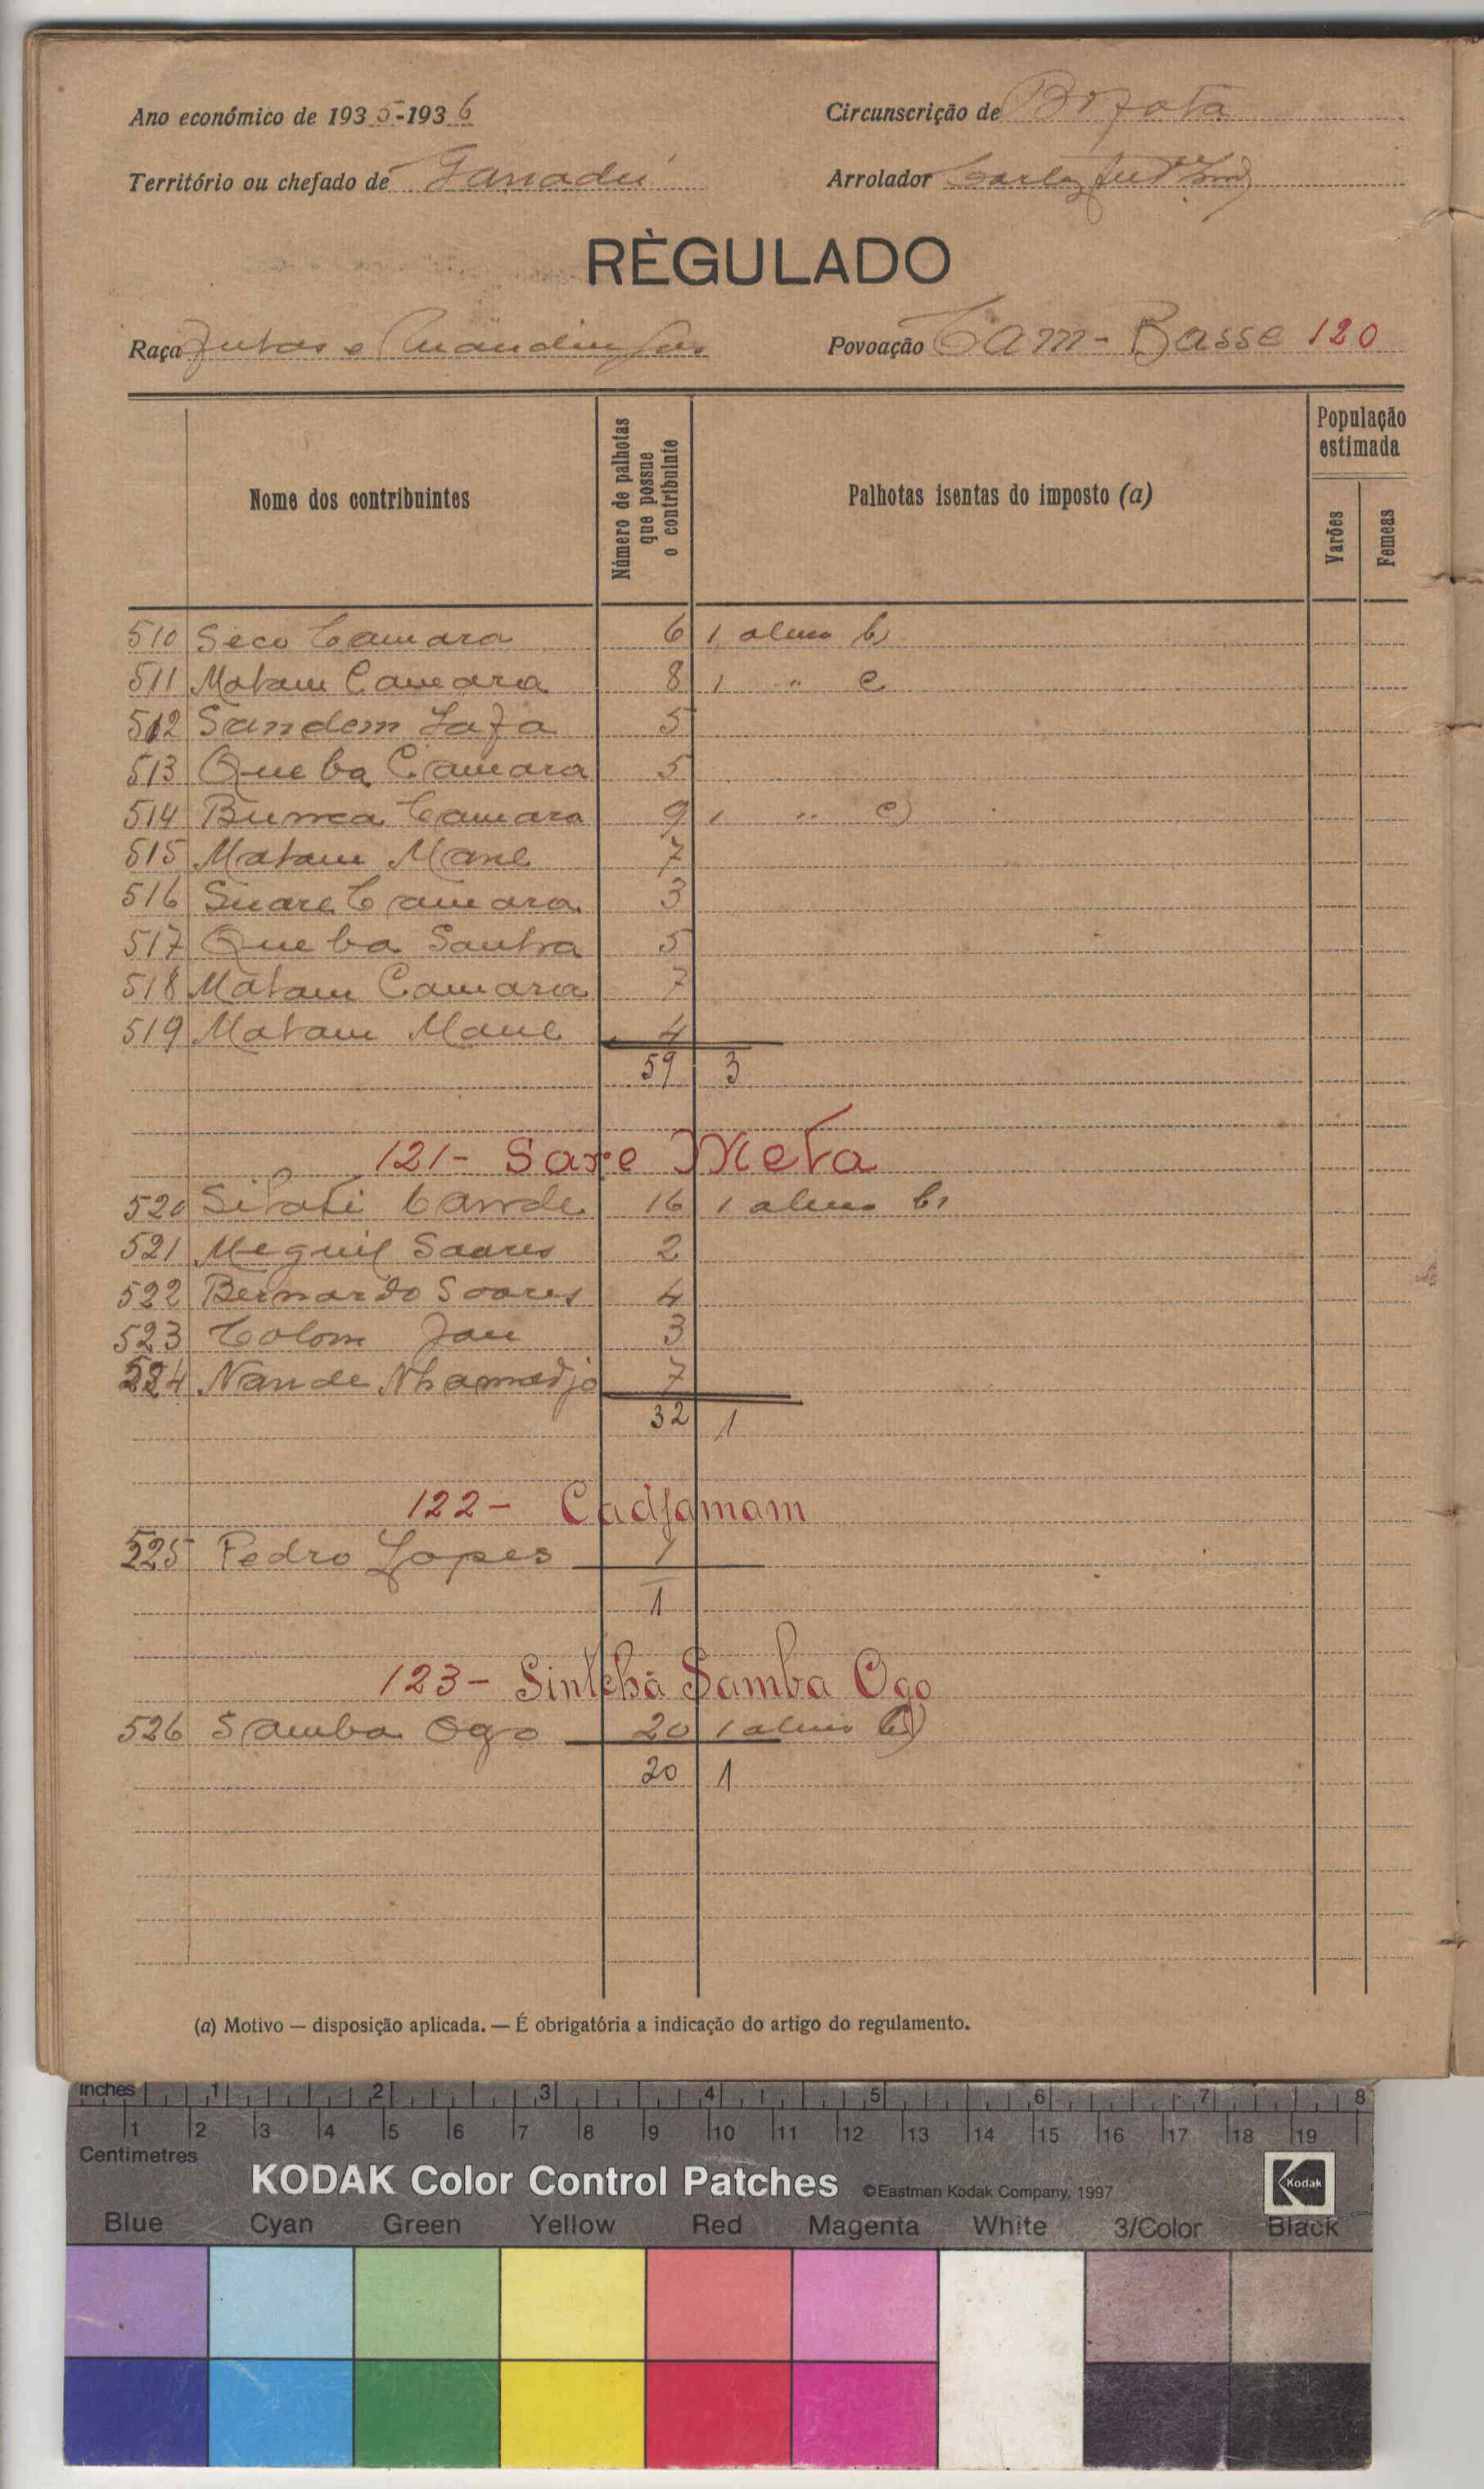 Ano económico de 1935-1936
Circunscrição de Bafata
Território ou chefado de Ganadú
Arrolador Carlos
RÈGULADO
Raça Fulas e Mandingas
Povoação Cam-Basse 120
Nome dos contribuintes
Número de palhotas que possue o contribuinte
Palhotas isentas do imposto (a)
População estimada
Varões
Femeas
510 Seco Camara 6 1 b)
511 Malam Camara 8 1 " c
512 Sandem 5
513 Queba Camara 5
514 Camara 9 1 " c)
515 Malam Mane 7
516 Suare Camara 3
517 Queba 5
518 Malam Camara 7
519 Malam Mane 4
59 3
121- Sare Meta
520 Cande 16 1 b)
521 Meguil Soares 2
522 Bernardo Soares 4
523 Colom Jau 3
524 Nande Nhamadjo 7
32 1
122- Cadjamam
525 Pedro Lopes 1
1
123- Sintchã Samba Ogo
526 Samba Ogo 20 1
20 1
(a) Motivo — disposição aplicada. — É obrigatória a indicação do artigo do regulamento.
Inches 1 2 3 4 5 6 7 8
1 2 3 4 5 6 7 8 9 10 11 12 13 14 15 16 17 18 19
Centimetres
KODAK Color Control Patches ©Eastman Kodak Company, 1997 Kodak
Blue Cyan Green Yellow Red Magenta White 3/Color Black